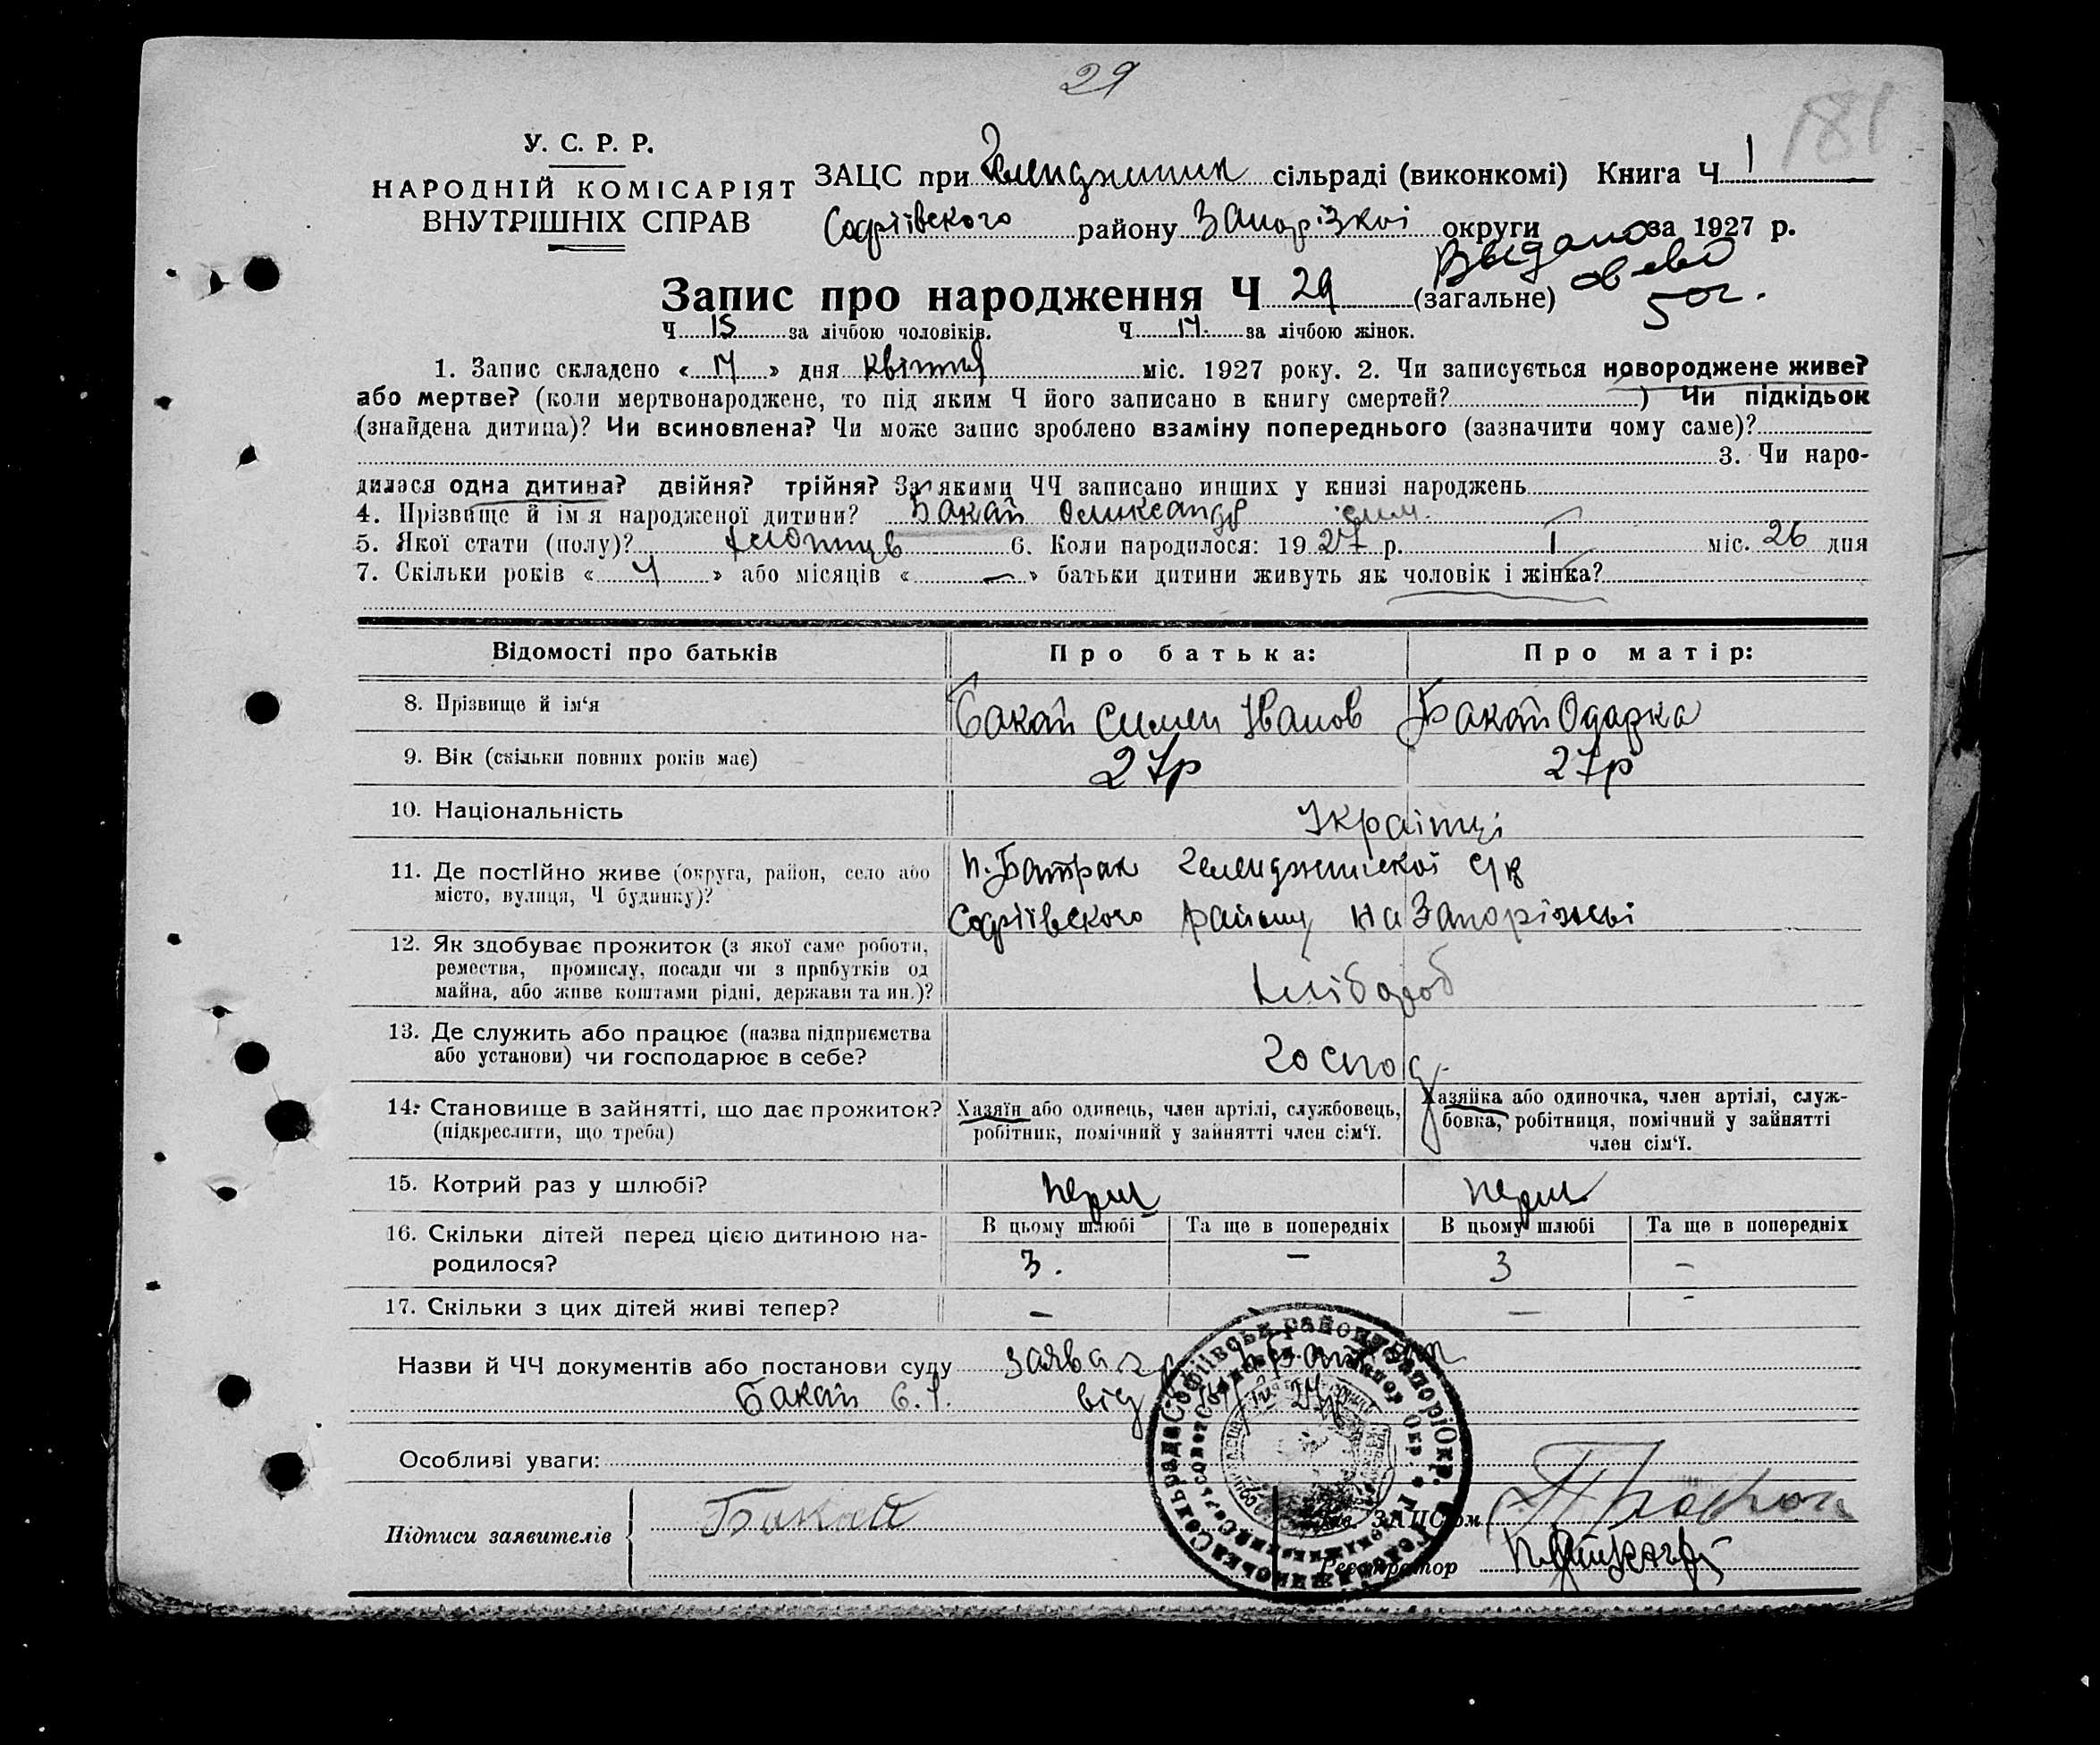 29
181
У. С. Р. Р.
НАРОДНІЙ КОМІСАРІЯТ
ВНУТРІШНІХ СПРАВ
ЗАЦС при сільраді (виконкомі) Книга Ч 1
Софіївского району Запорізкоі округи за 1927 р.
Выдано
Запис про народження Ч 29 (загальне)
50г.
Ч 15 за лічбою чоловіків. Ч 14. за лічбою жінок.
1. Запис складено « » дня квітня міс. 1927 року. 2. Чи записується новороджене живе?
або мертве? (коли мертвонароджене, то під яким Ч його записано в книгу смертей? ) Чи підкідьок
(знайдена дитина)? Чи всиновлена? Чи може запис зроблено взаміну попереднього (зазначити чому саме)?
3. Чи наро-
дилася одна дитина? двійня? трійня? За якими ЧЧ записано инших у книзі народжень
4. Прізвище й ім'я народженої дитини? Бакай Олександр сим.
5. Якої стати (полу)? хлопець 6. Коли народилося: 1927 р. I міс. 26 дня
7. Скільки років « 4 » або місяців « — » батьки дитини живуть як чоловік і жінка?
Відомості про батьків
Про батька:
Про матір:
8. Прізвище й ім‘я
Бакай Симен Іванов
Бакай Одарка
9. Вік (скільки повних років має)
27р
27р
10. Національність
Українці
11. Де постійно живе (округа, район, село або
місто, вулиця, Ч будинку)?
п. Батрак с/р
Софіївского району на Запоріжжі
12. Як здобуває прожиток (з якої саме роботи,
ремества, промислу, посади чи з прибутків од
майна, або живе коштами рідні, держави та ин.)?
хлібороб
13. Де служить або працює (назва підприємства
або установи) чи господарює в себе?
господ.
14. Становище в зайнятті, що дає прожиток?
(підкреслити, що треба)
Хазяїн або одинець, член артілі, службовець,
робітник, помічний у зайнятті член сім‘ї.
Хазяйка або одиночка, член артілі, служ-
бовка, робітниця, помічний у зайнятті
член сім‘ї.
15. Котрий раз у шлюбі?
перш
перш
16. Скільки дітей перед цією дитиною на-
родилося?
В цьому шлюбі
Та ще в попередніх
В цьому шлюбі
Та ще в попередніх
3. — 3 —
17. Скільки з цих дітей живі тепер?
— — -
Назви й ЧЧ документів або постанови суду заява
Бакай С. І. від
Особливі уваги:
Підписи заявителів
Бакай
Зав. ЗАЦСом
Реєстратор